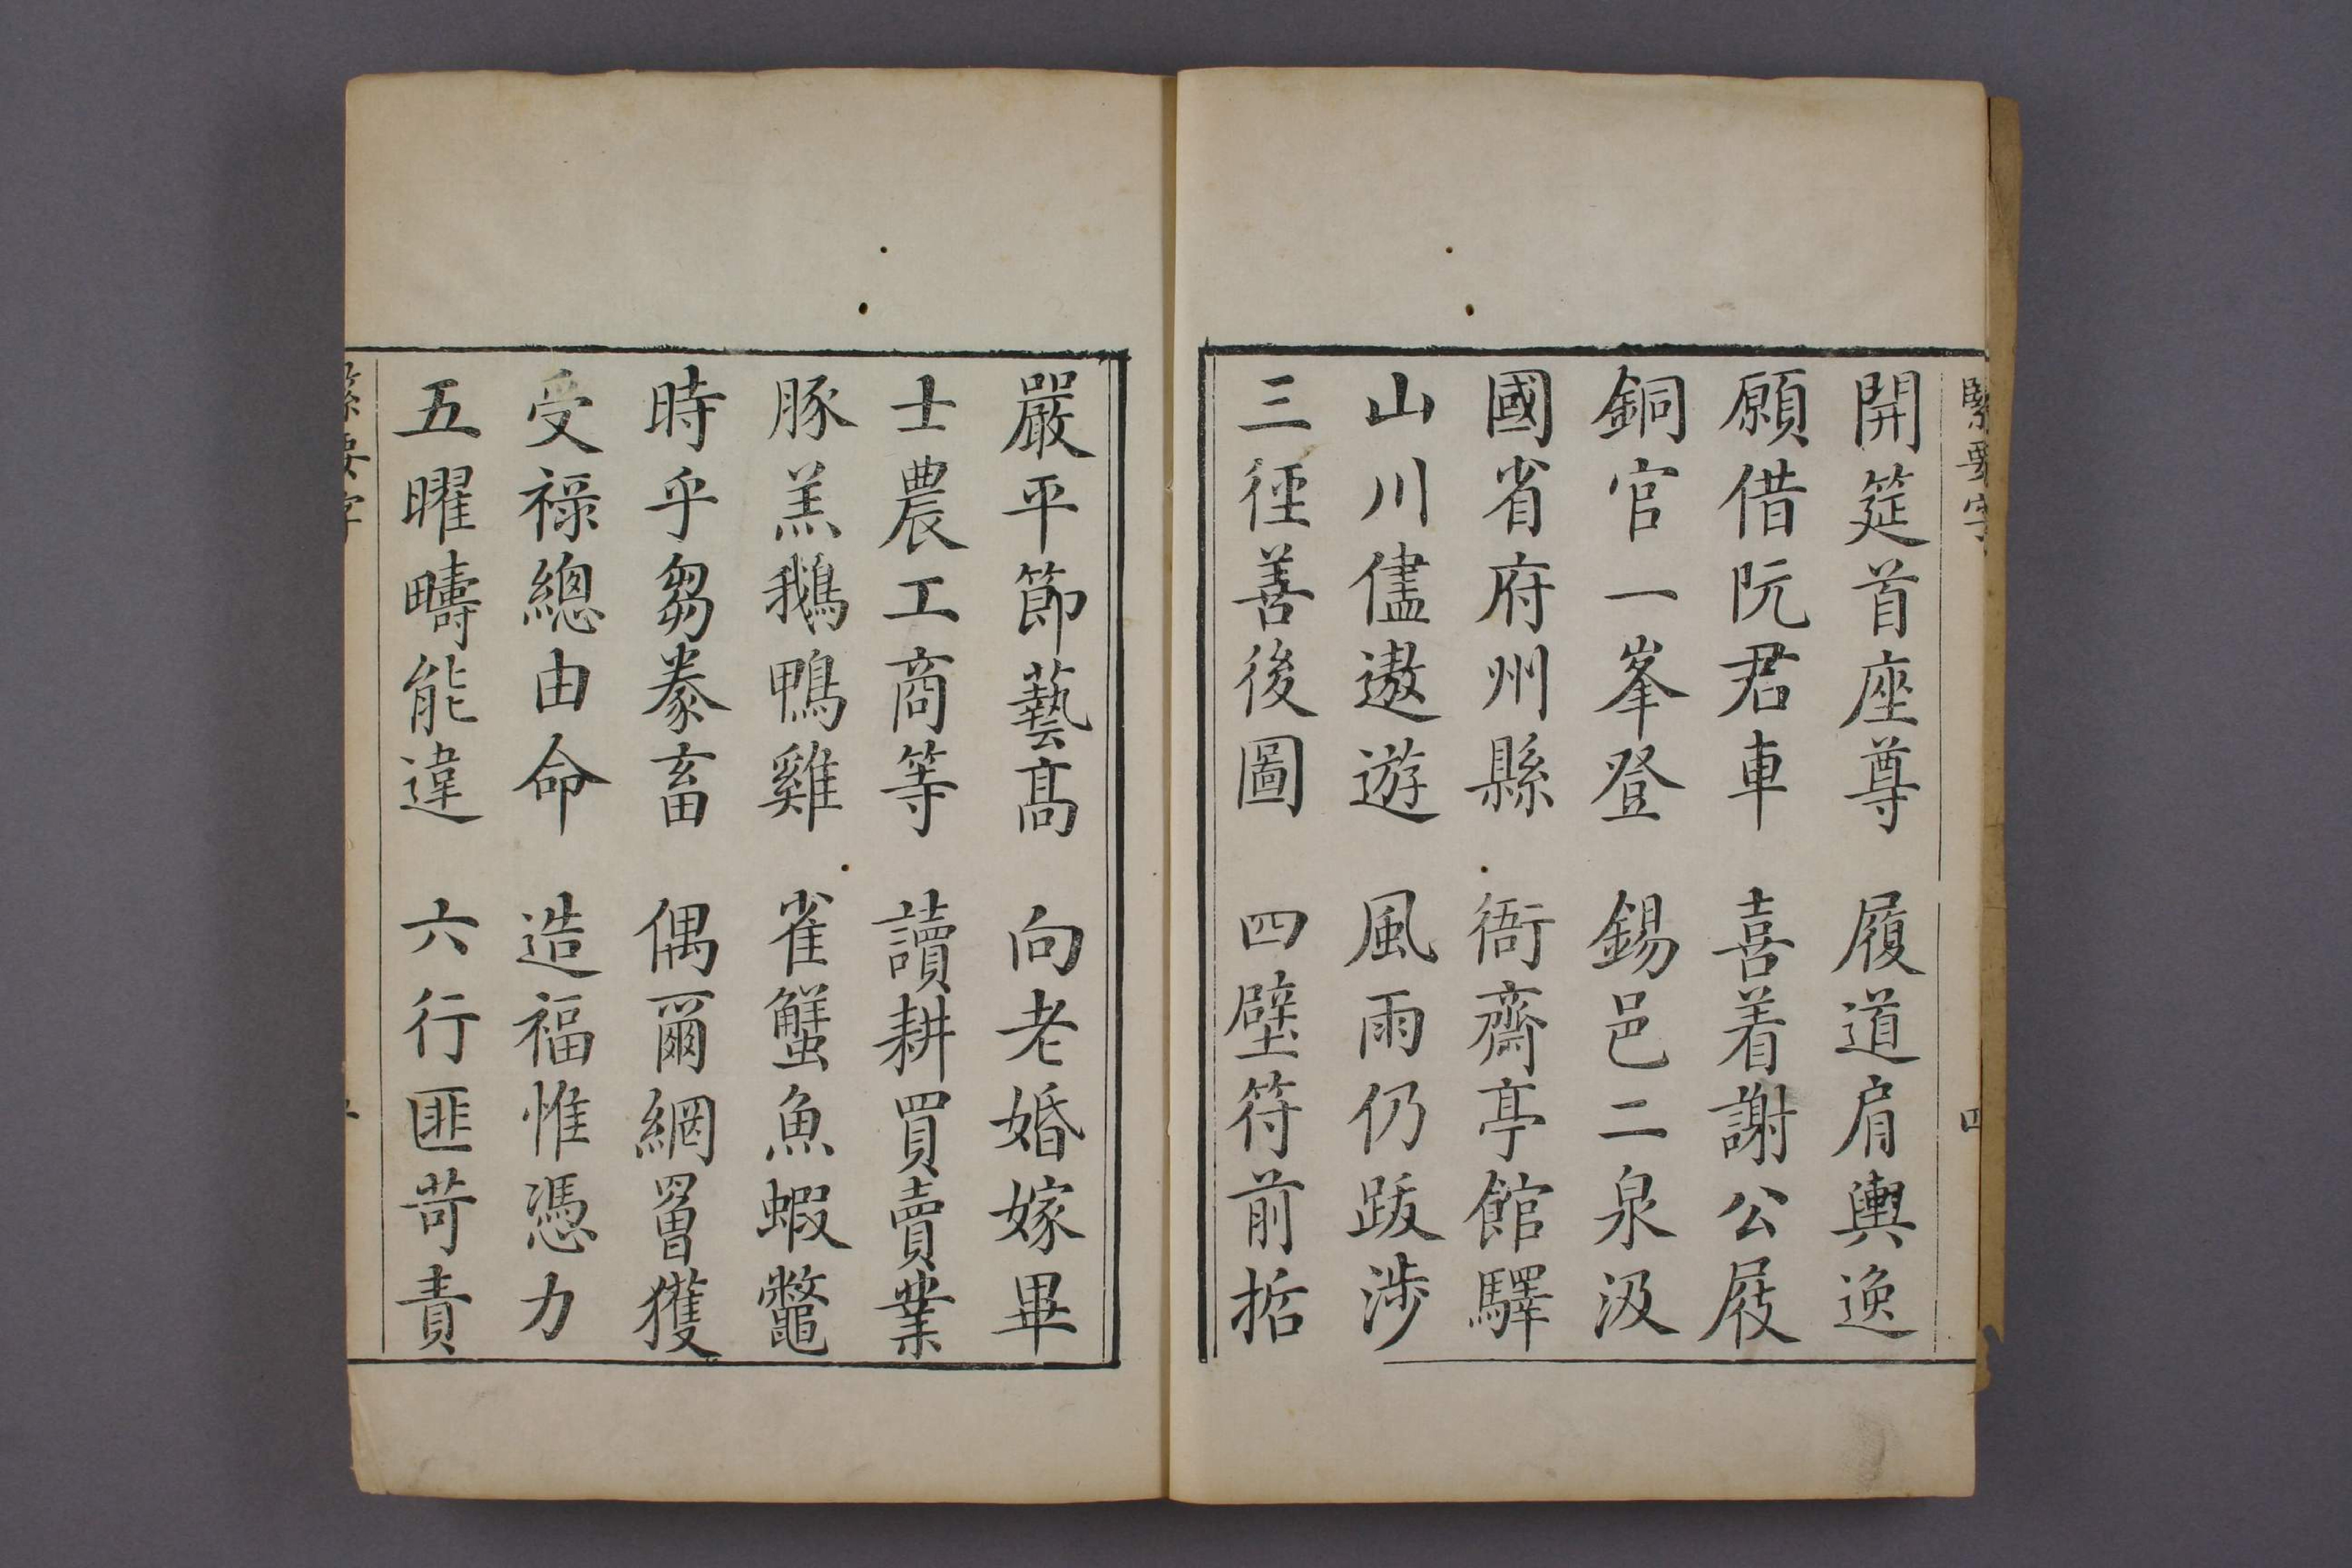 緊要字
四
開筵首座尊 履道肩輿逸
願借阮君車 喜着謝公屐
銅官一峯登 錫邑二泉汲
國省府州縣 衙齋亭館驛
山川儘遨遊 風雨仍跋涉
三徑善後圖 四壁符前哲
嚴平節藝高 向老婚嫁畢
士農工商等 讀耕買賣業
豚羔鵝鴨雞 雀蟹魚蝦鼈
時乎芻豢畜 偶爾網罾獲
受祿總由命 造福惟憑力
五曜疇能違 六行匪苛責
緊要字